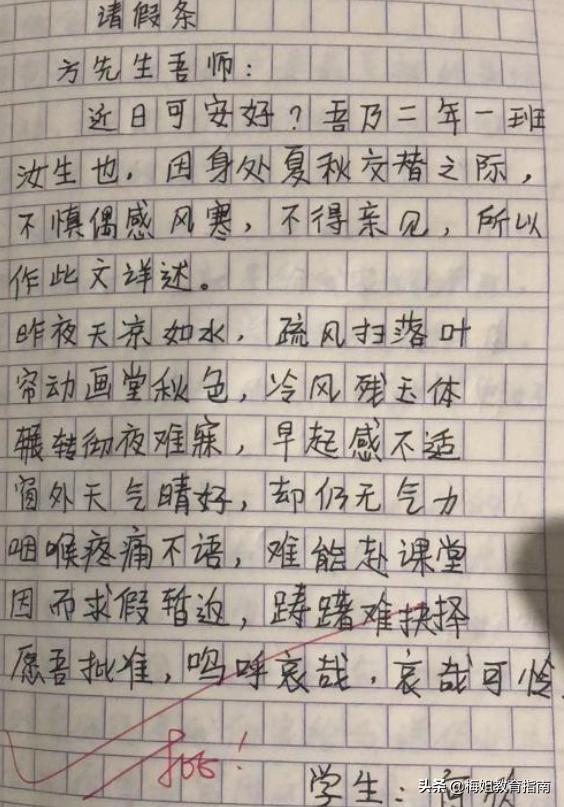 请假条
方先生吾师：
近日可安好？吾乃二年一班
汝生也，因身处夏秋交替之际，
不慎偶感风寒，不得亲见，所以
作此文详述。
昨夜天凉如水，疏风扫落叶
帘动画堂秋色，冷风残玉体
辗转彻夜难寐，早起感不适
窗外天气晴好，却仍无气力
咽喉疼痛不语，难能赴课堂
因而求假暂返，踌躇难抉择
愿吾批准，呜呼哀哉，哀哉可怜
批！
学生：
头条 @梅妲教育指南